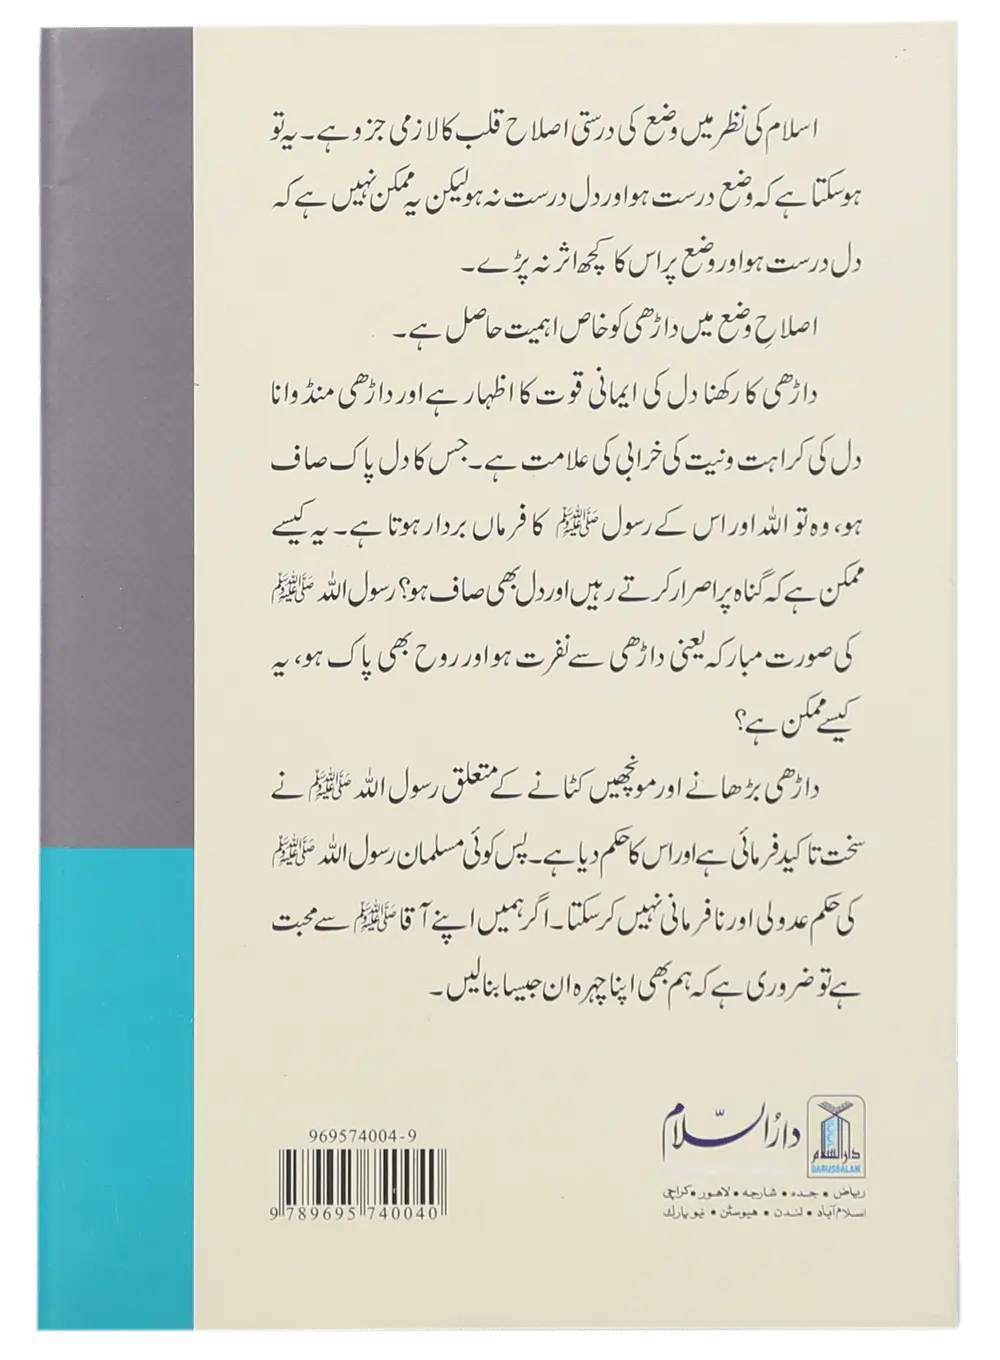 اسلام کی نظر میں وضع کی درستی اصلاح قلب کا لازمی جزو ہے۔ یہ تو
ہوسکتا ہے کہ وضع درست ہو اور دل درست نہ ہو لیکن یہ ممکن نہیں ہے کہ
دل درست ہو اور وضع پر اس کا کچھ اثر نہ پڑے۔
اصلاحِ وضع میں داڑھی کو خاص اہمیت حاصل ہے۔
داڑھی کا رکھنا دل کی ایمانی قوت کا اظہار ہے اور داڑھی منڈوانا
دل کی کراہت ونیت کی خرابی کی علامت ہے۔ جس کا دل پاک صاف
ہو، وہ تو اللہ اور اس کے رسول ﷺ کا فرماں بردار ہوتا ہے۔ یہ کیسے
ممکن ہے کہ گناہ پر اصرار کرتے رہیں اور دل بھی صاف ہو؟ رسول اللہ ﷺ
کی صورت مبارکہ یعنی داڑھی سے نفرت ہو اور روح بھی پاک ہو، یہ
کیسے ممکن ہے؟
داڑھی بڑھانے اور مونچھیں کٹانے کے متعلق رسول اللہ ﷺ نے
سخت تاکید فرمائی ہے اور اس کا حکم دیا ہے۔ پس کوئی مسلمان رسول اللہ ﷺ
کی حکم عدولی اور نافرمانی نہیں کرسکتا۔ اگر ہمیں اپنے آقا ﷺ سے محبت
ہے تو ضروری ہے کہ ہم بھی اپنا چہرہ ان جیسا بنالیں۔
دارُالسّلام
دارالسلام
DARUSSALAM
ریاض • جدہ • شارجہ • لاهور • کراچی
اسلام آباد • لندن • هیوسٹن • نیو یارك
969574004-9
9 789695 740040